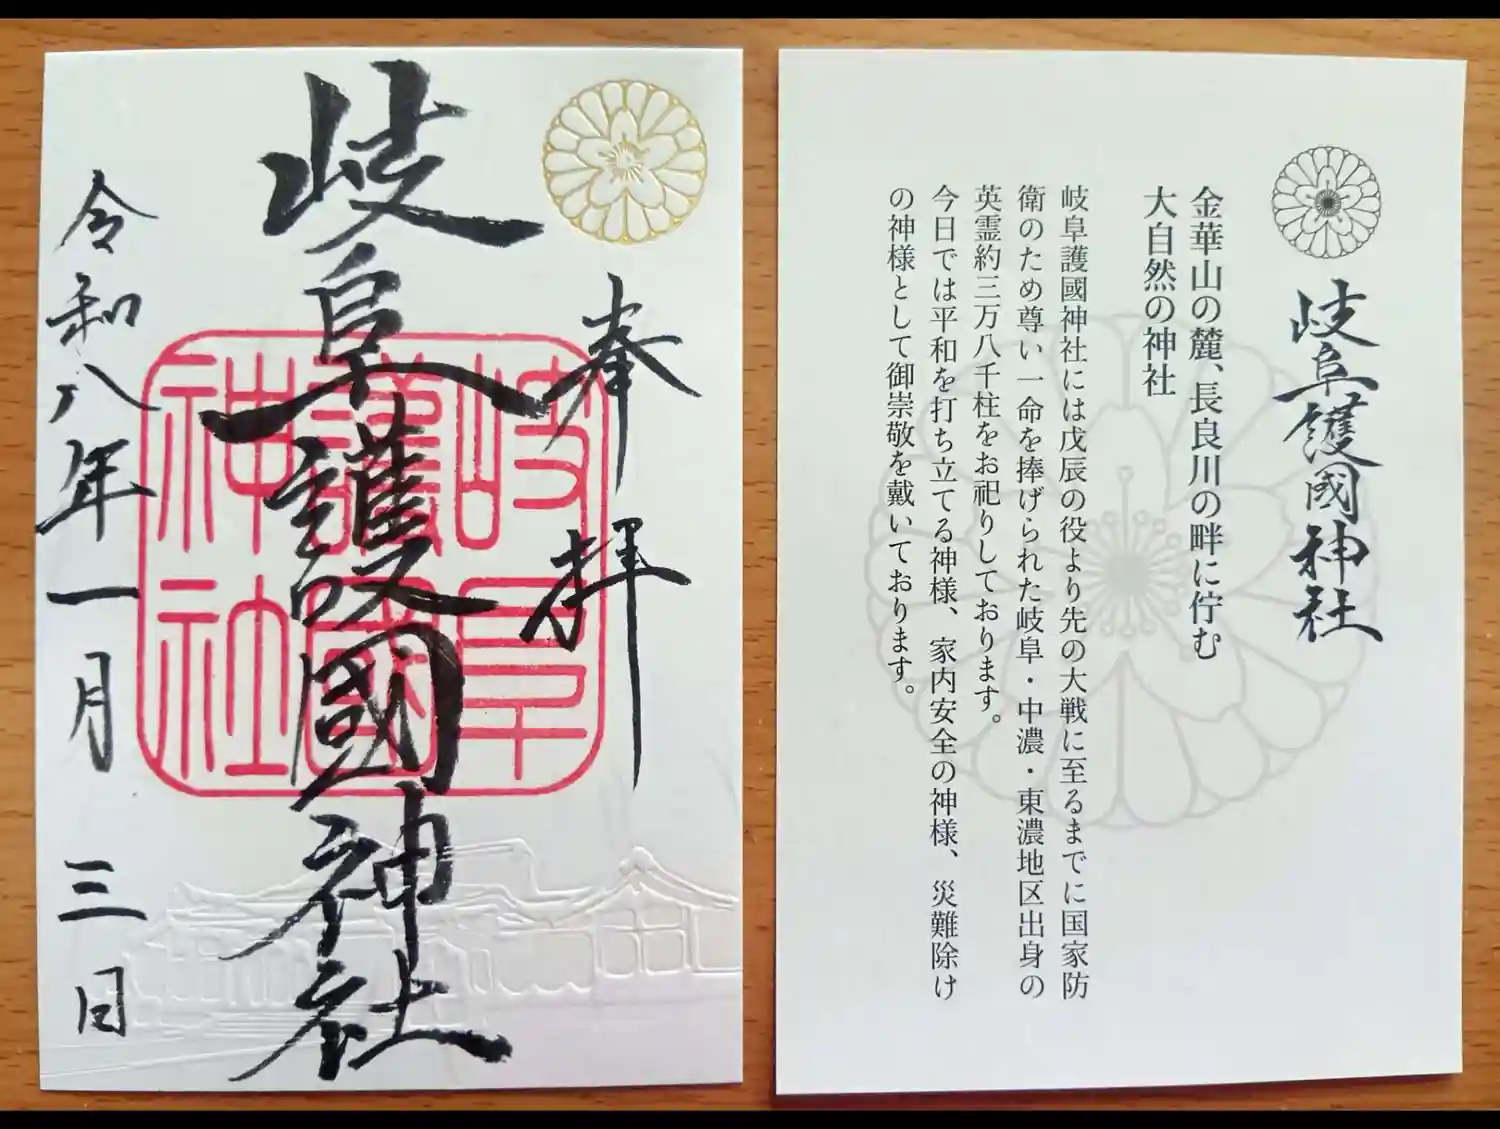 奉拝
岐阜護國神社
岐阜
護國
神社
令和八年一月三日
岐阜護國神社
金華山の麓、長良川の畔に佇む
大自然の神社
岐阜護國神社には戊辰の役より先の大戦に至るまでに国家防
衛のため尊い一命を捧げられた岐阜・中濃・東濃地区出身の
英霊約三万八千柱をお祀りしております。
今日では平和を打ち立てる神様、家内安全の神様、災難除け
の神様として御崇敬を戴いております。